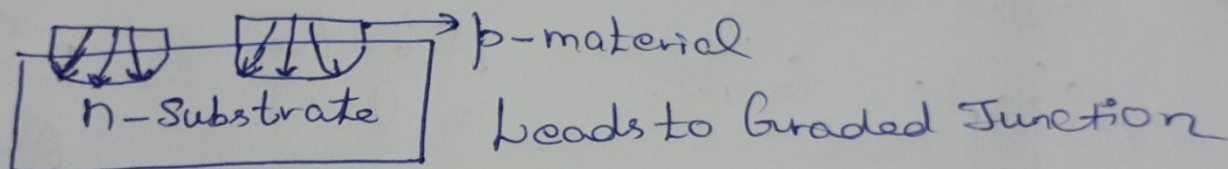 p-material
n-Substrate
Leads to Graded Junction